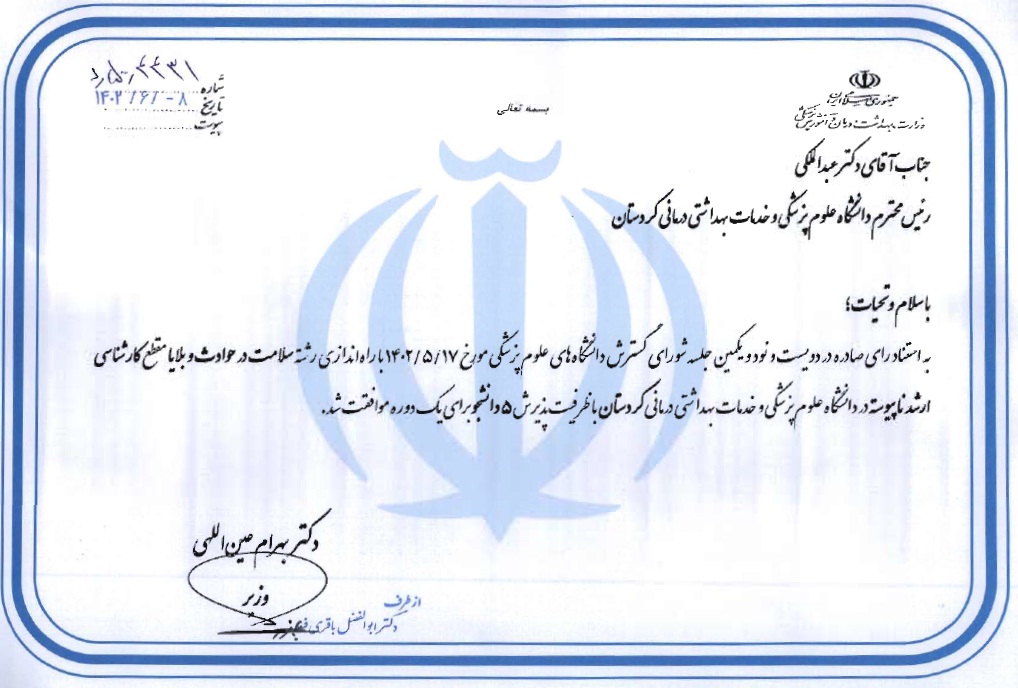 جمهوری اسلامی ایران
وزارت بهداشت، درمان و آموزش پزشکی
بسمه تعالی
شماره ۵۰۰/۴۴۳۱/د
تاریخ ۱۴۰۲/۶/۰۸
پیوست
جناب آقای دکتر عبدالملکی
رئیس محترم دانشگاه علوم پزشکی و خدمات بهداشتی درمانی کردستان
با سلام و تحیات؛
به استناد رای صادره در دویست و نود و یکمین جلسه شورای گسترش دانشگاه های علوم پزشکی مورخ ۱۴۰۲/۵/۱۷ با راه اندازی رشته سلامت در حوادث و بلایا مقطع کارشناسی
ارشد ناپیوسته در دانشگاه علوم پزشکی و خدمات بهداشتی درمانی کردستان با ظرفیت پذیرش ۵ دانشجو برای یک دوره موافقت شد.
دکتر بهرام عین اللهی
وزیر
از طرف
دکتر ابوالفضل باقری فرد